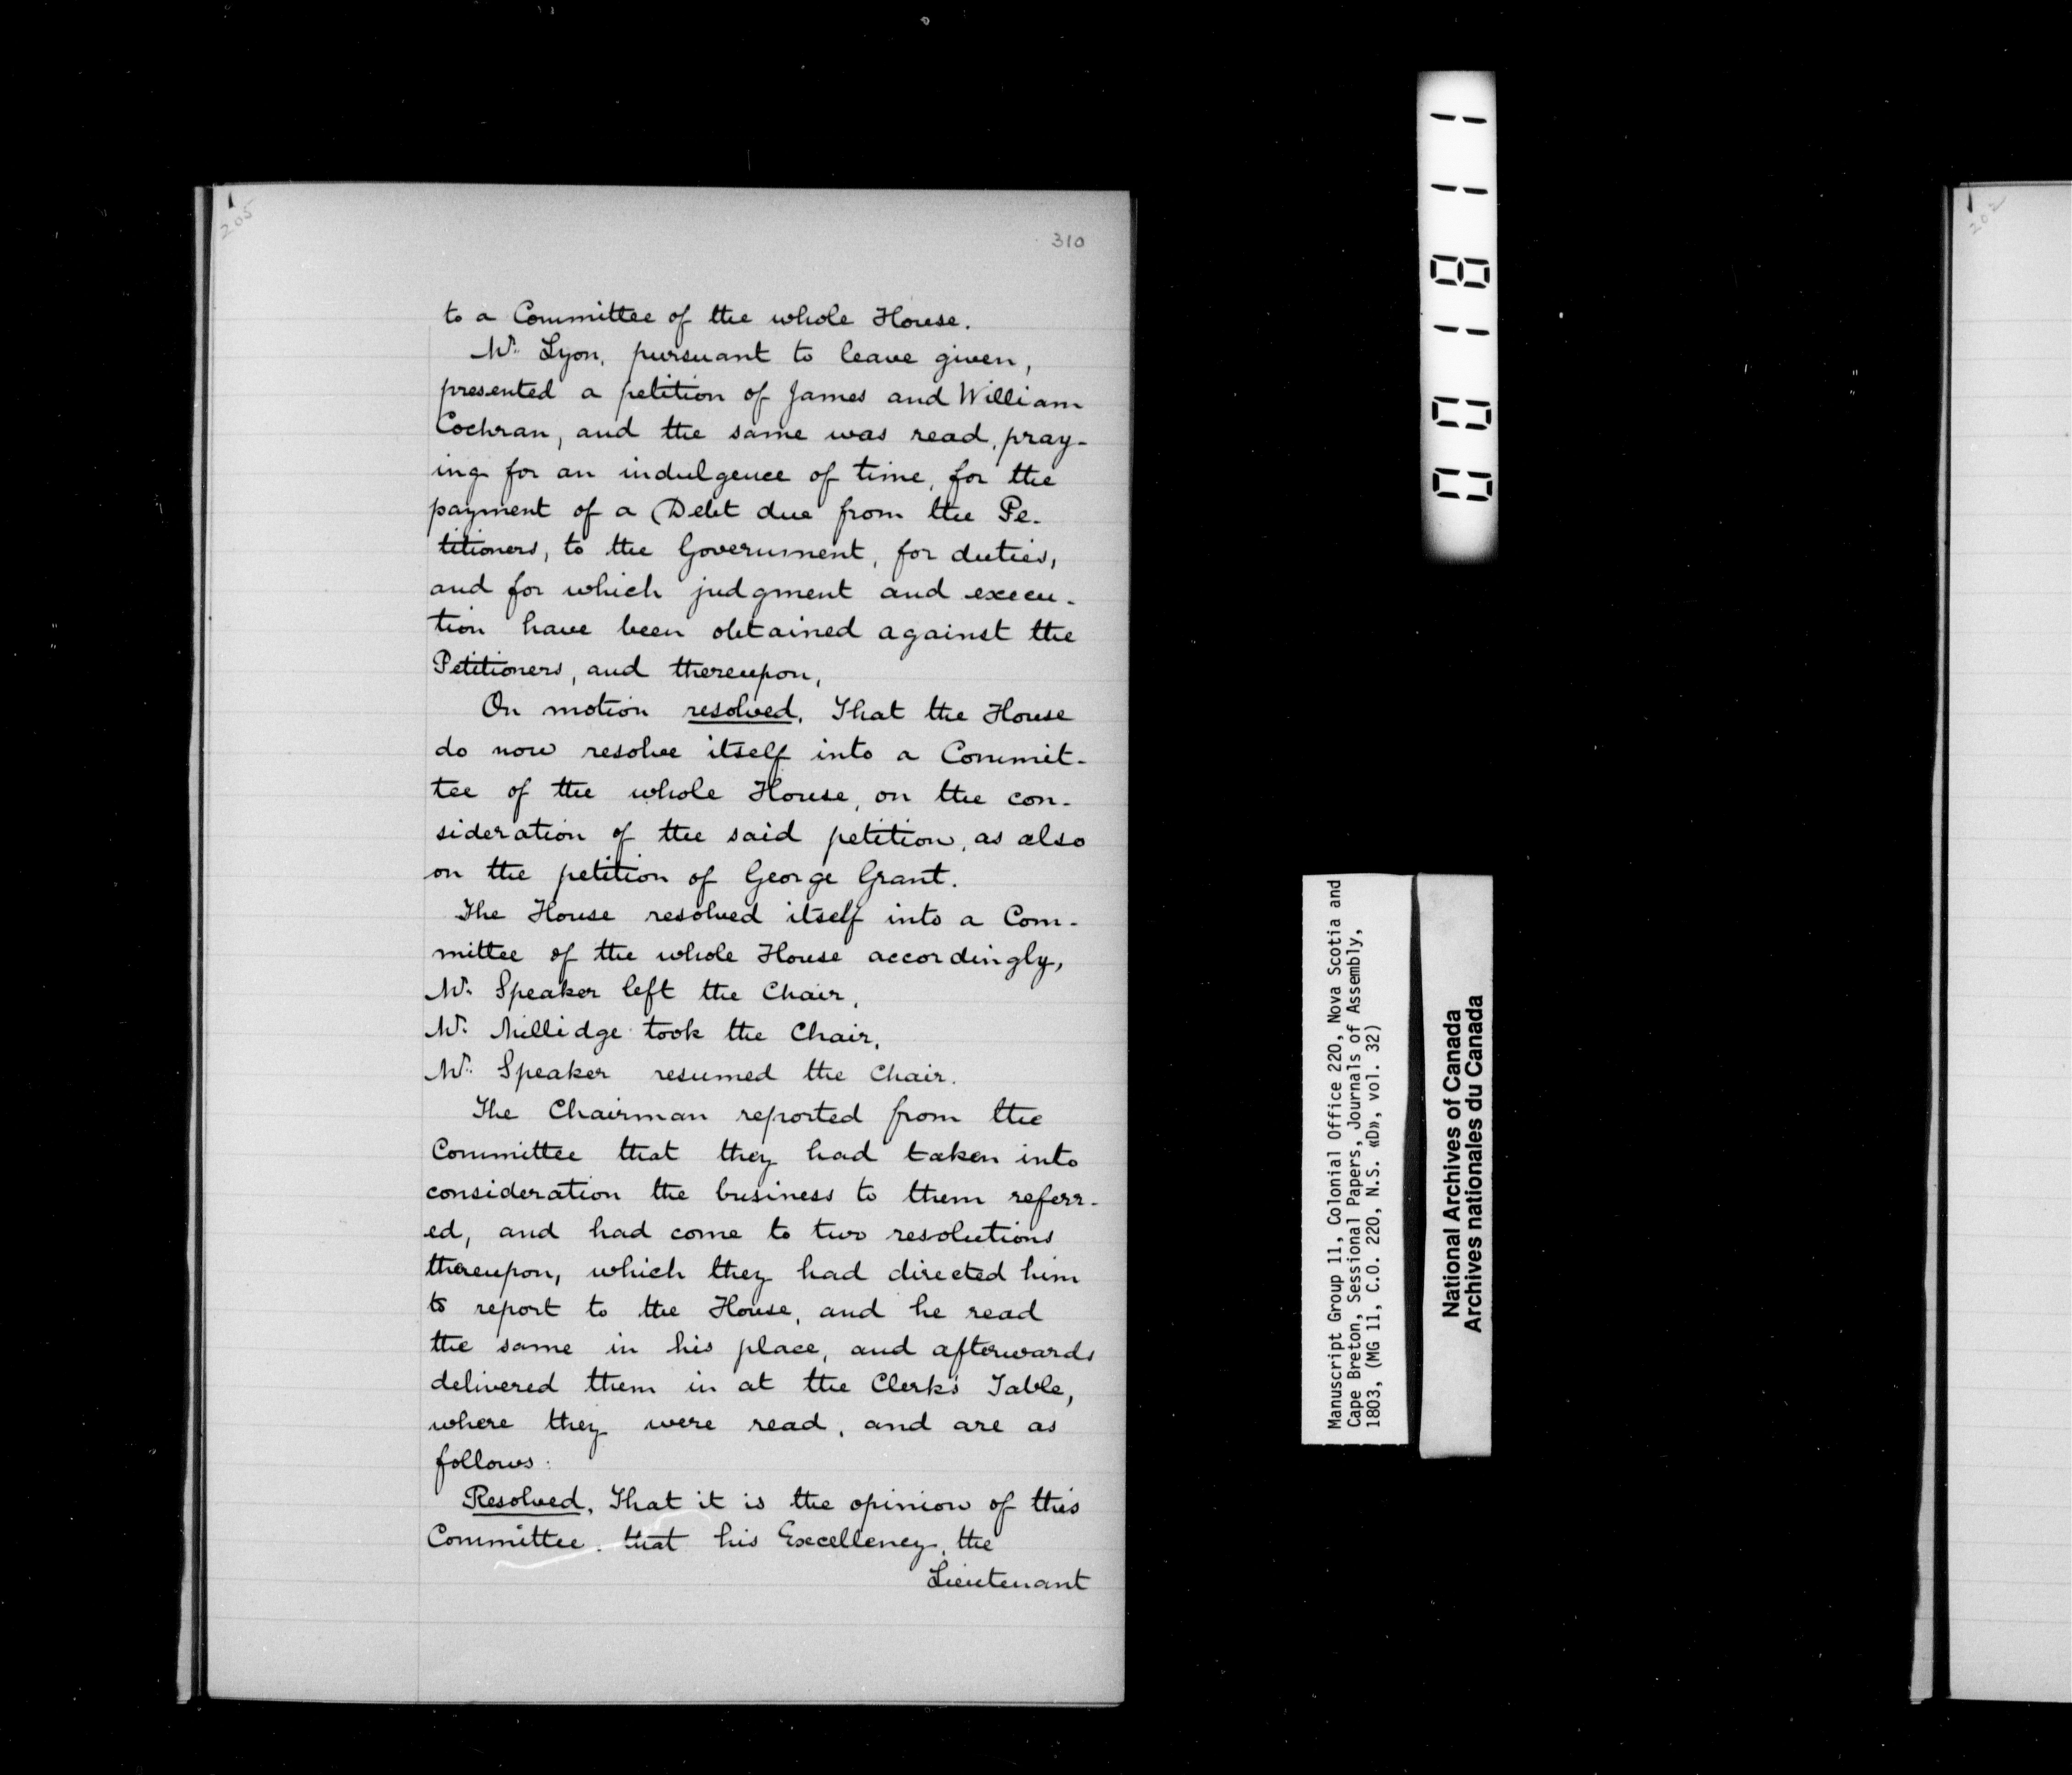 205
310
to a Committee of the whole House.
Mr. Lyon, pursuant to leave given,
presented a petition of James and William
Cochran, and the same was read, pray-
ing for an indulgence of time, for the
payment of a Debt due from the Pe-
titioners, to the Government, for duties,
and for which judgment and execu-
tion have been obtained against the
Petitioners, and thereupon,
On motion resolved, That the House
do now resolve itself into a Commit-
tee of the whole House, on the con-
sideration of the said petition, as also
on the petition of George Grant.
The House resolved itself into a Com-
mittee of the whole House accordingly,
Mr. Speaker left the Chair,
Mr. Millidge took the Chair,
Mr. Speaker resumed the Chair.
The Chairman reported from the
Committee that they had taken into
consideration the business to them referr-
ed, and had come to two resolutions
thereupon, which they had directed him
to report to the House, and he read
the same in his place, and afterwards
delivered them in at the Clerk's Table,
where they were read, and are as
follows:
Resolved, That it is the opinion of this
Committee, that his Excellency, the
Lieutenant
001811
Manuscript Group 11, Colonial Office 220, Nova Scotia and
Cape Breton, Sessional Papers, Journals of Assembly,
1803, (MG 11, C.O. 220, N.S. «D», vol. 32)
National Archives of Canada
Archives nationales du Canada
202